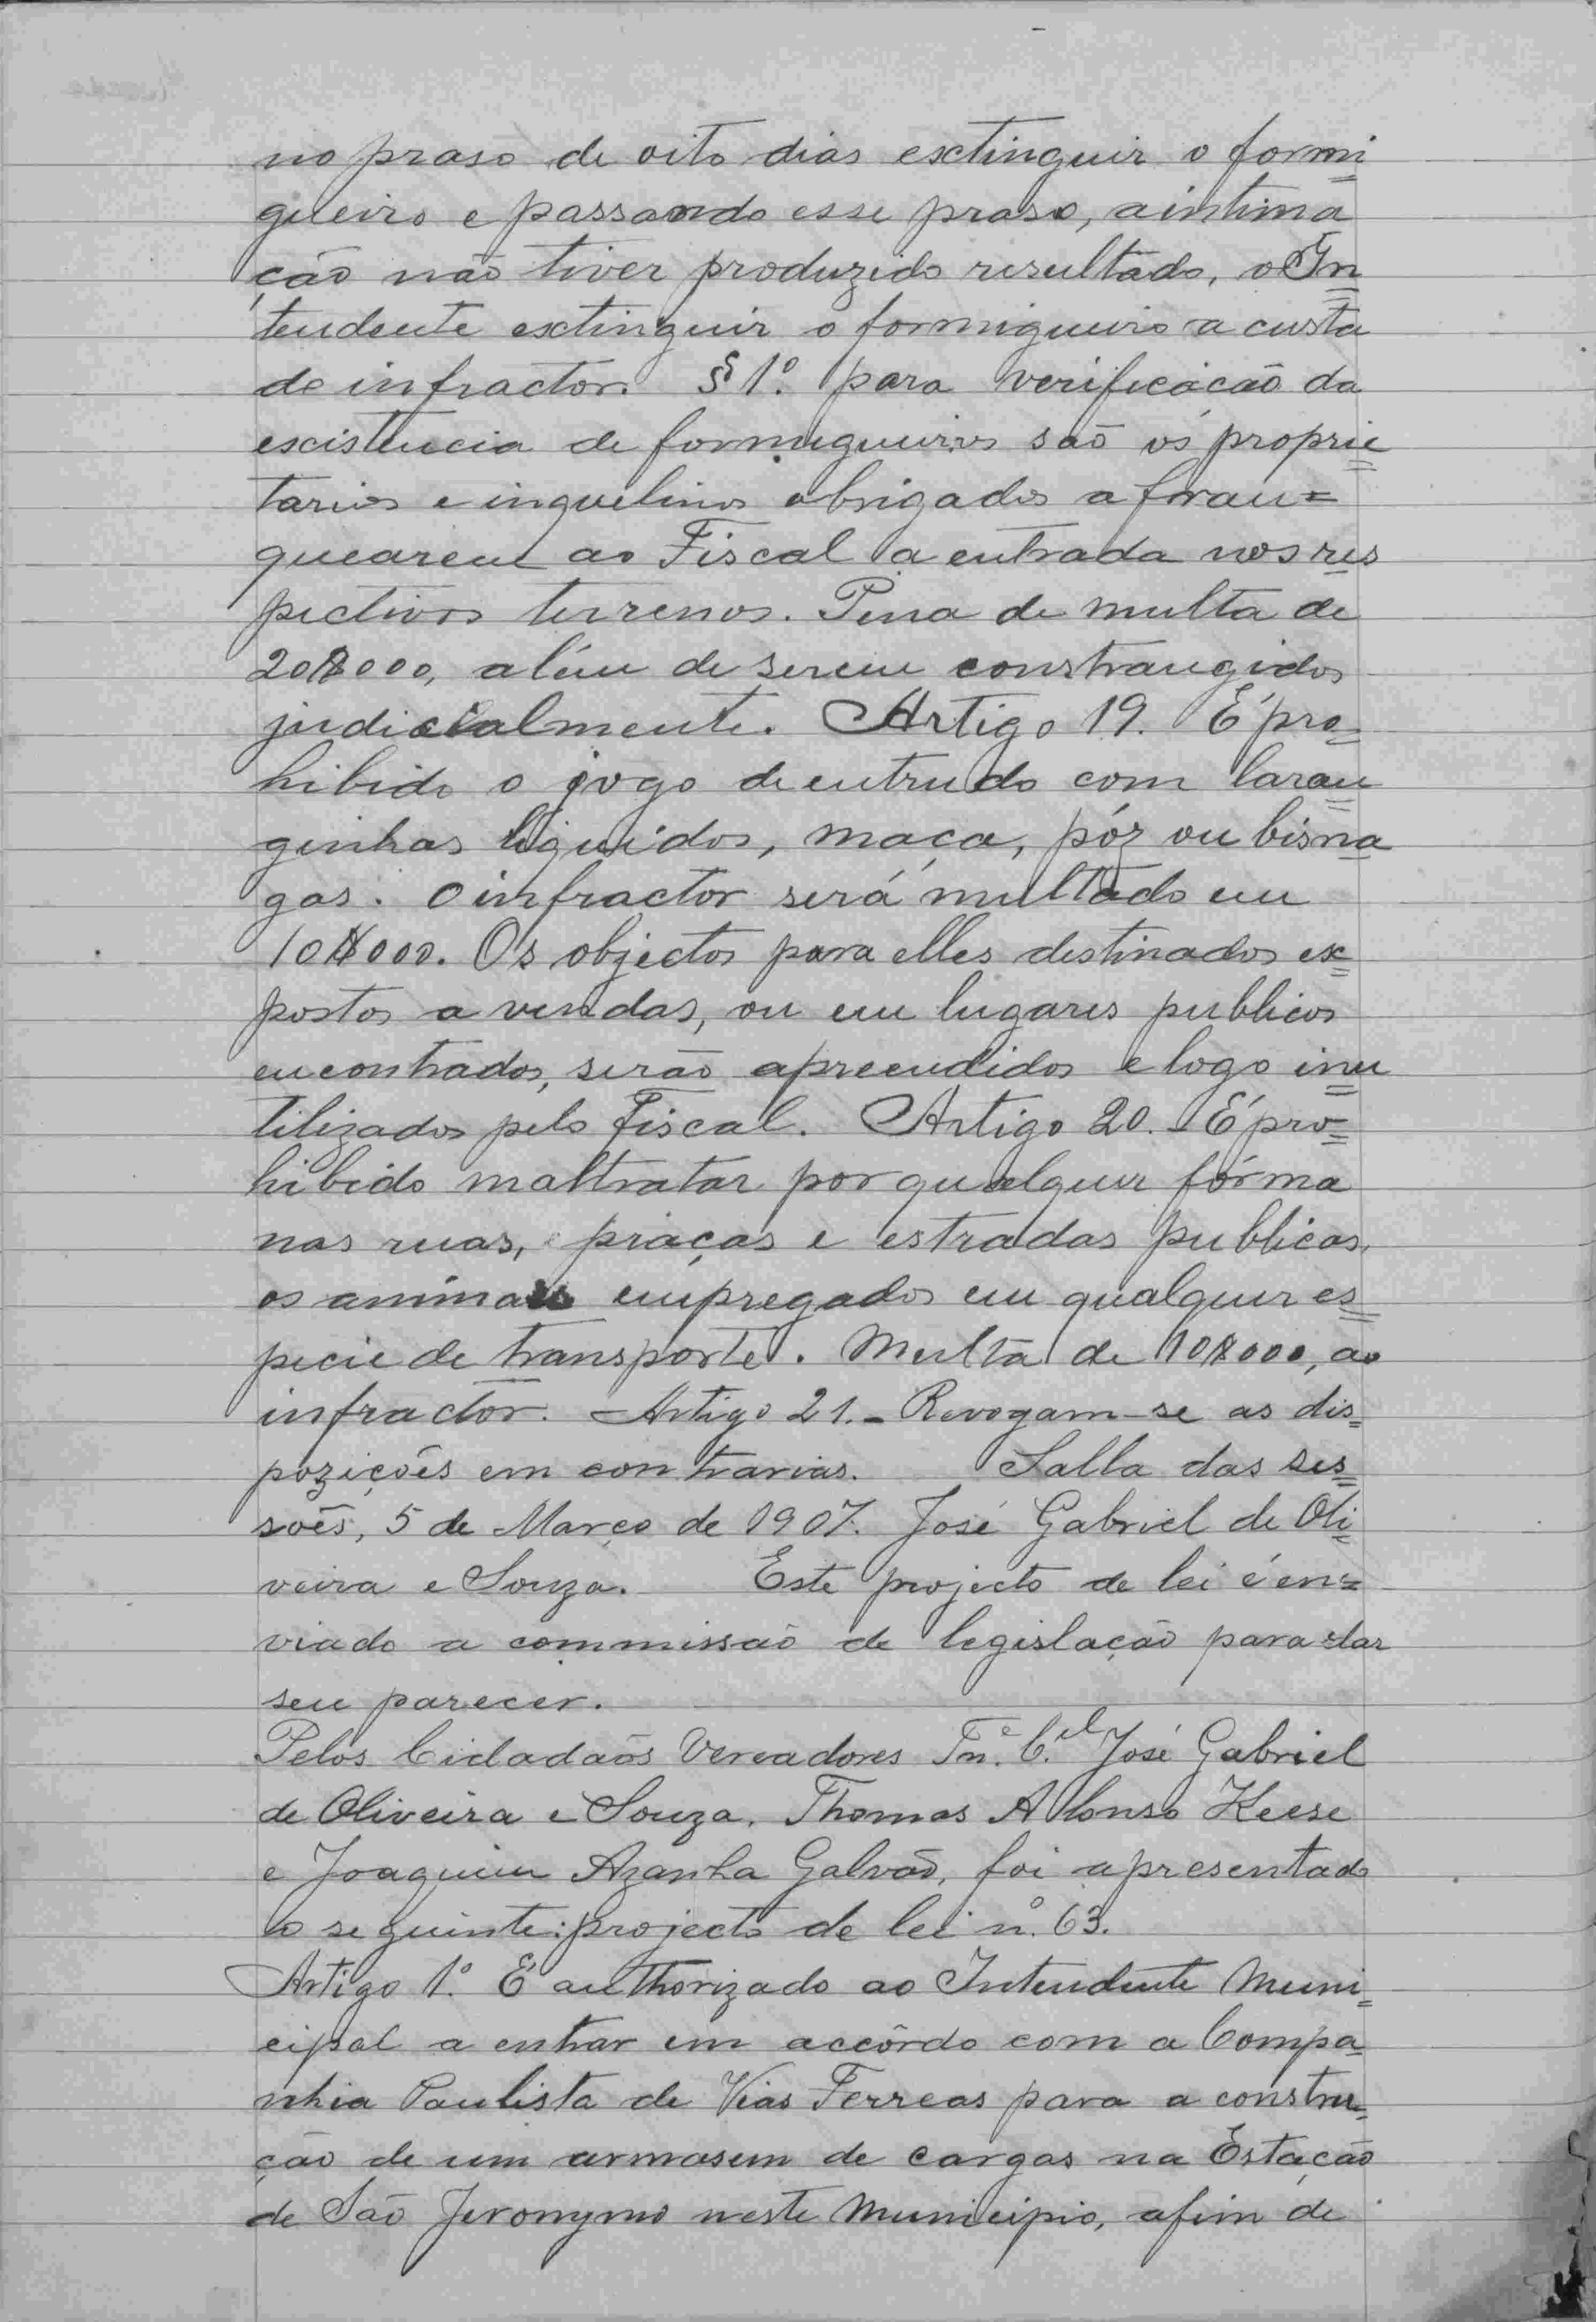 no praso de oito dias exctinguir o formi=
gueiro e passando esse praso, a intima
ção não tiver produzido resultado, o In=
tendente exctinguir o formigueiro a custa
de infractor. § 1º. para verificação da
excistencia de formigueiros são os proprie=
tarios e inquelinos obrigados a fran=
quearem ao Fiscal a entrada nos res=
pectivos terrenos. Pena de multa de
20$000, além de serem constrangidos
judicialmente. Artigo 19. É pro=
hibido o jogo de entrudo com laran=
ginhas liquidos, maça, póz ou bisna=
gas. O infractor será multado em
10$000. Os objectos para elles destinados ex=
postos a vendas, ou em lugares publicos
encontrados, serão apreendidos e logo inu=
tilizados pelo Fiscal. Artigo 20. É pro=
hibido maltratar por qualquer fórma
nas ruas, praças e estradas publicas,
os animais empregados em qualquer es=
pecie de transporte. Multa de 10$000, ao
infractor. Artigo 21.- Revogam-se as dis=
pozições em contrarias. Salla das ses=
soês, 5 de Março de 1907. José Gabriel de Oli=
veira e Souza. Este projecto de lei é en=
viado a commissão de legislação para dar
seu parecer.
Pelos Cidadaõs Vereadores Tn.e C.el José Gabriel
de Oliveira e Souza, Thomas Alonso Keese
e Joaquim Azanha Galvão, foi apresentado
o seguinte: projecto de lei nº. 63.
Artigo 1º. É authorizado ao Intendente Muni=
cipal a entrar em accôrdo com a Compa=
nhia Paulista de Vias Ferreas para a constru=
ção de um armasem de cargas na Estação
de São Jeronymo neste Municipio, afim de